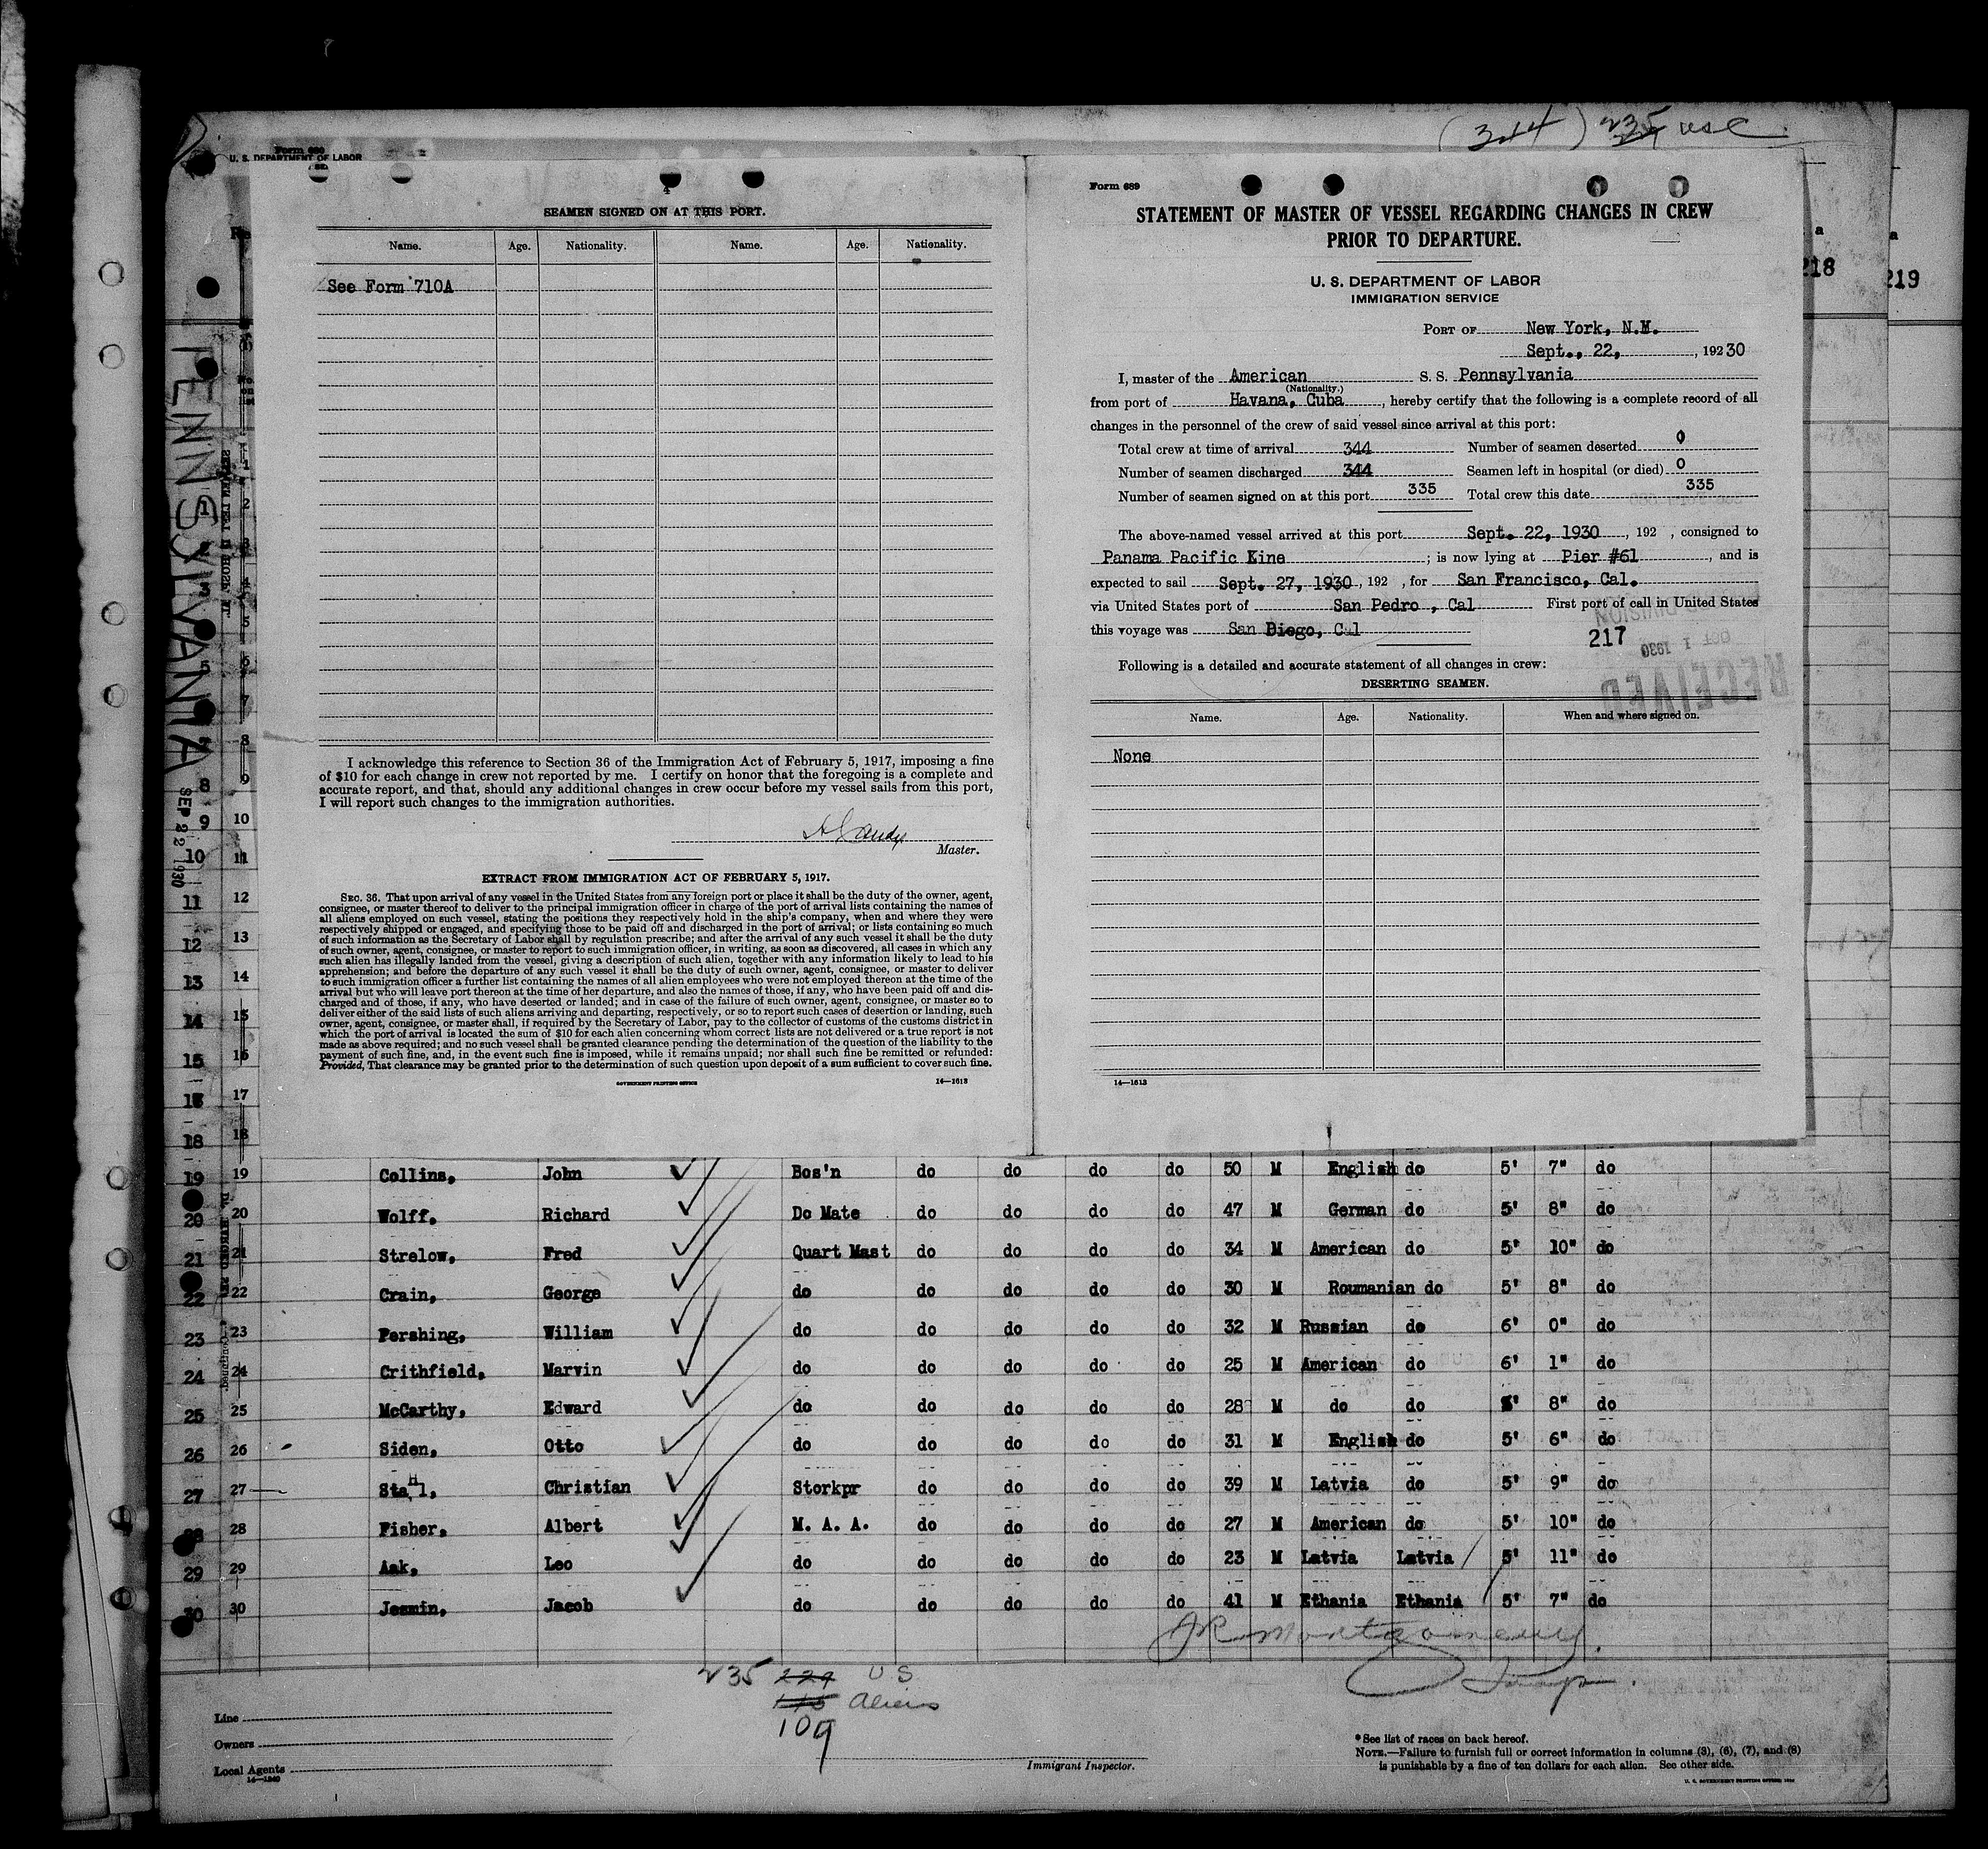 (314) 235 USC
Form 680
U. S. DEPARTMENT OF LABOR
PENNSYLVANIA
SEP 22 1930
4
SEAMEN SIGNED ON AT THIS PORT.
Name. Age. Nationality. Name. Age. Nationality.
See Form 710A
I acknowledge this reference to Section 36 of the Immigration Act of February 5, 1917, imposing a fine
of $10 for each change in crew not reported by me. I certify on honor that the foregoing is a complete and
accurate report, and that, should any additional changes in crew occur before my vessel sails from this port,
I will report such changes to the immigration authorities.
Master.
EXTRACT FROM IMMIGRATION ACT OF FEBRUARY 5, 1917.
SEC. 36. That upon arrival of any vessel in the United States from any foreign port or place it shall be the duty of the owner, agent,
consignee, or master thereof to deliver to the principal immigration officer in charge of the port of arrival lists containing the names of
all aliens employed on such vessel, stating the positions they respectively hold in the ship's company, when and where they were
respectively shipped or engaged, and specifying those to be paid off and discharged in the port of arrival; or lists containing so much
of such information as the Secretary of Labor shall by regulation prescribe; and after the arrival of any such vessel it shall be the duty
of such owner, agent, consignee, or master to report to such immigration officer, in writing, as soon as discovered, all cases in which any
such alien has illegally landed from the vessel, giving a description of such alien, together with any information likely to lead to his
apprehension; and before the departure of any such vessel it shall be the duty of such owner, agent, consignee, or master to deliver
to such immigration officer a further list containing the names of all alien employees who were not employed thereon at the time of the
arrival but who will leave port thereon at the time of her departure, and also the names of those, if any, who have been paid off and dis-
charged and of those, if any, who have deserted or landed; and in case of the failure of such owner, agent, consignee, or master so to
deliver either of the said lists of such aliens arriving and departing, respectively, or so to report such cases of desertion or landing, such
owner, agent, consignee, or master shall, if required by the Secretary of Labor, pay to the collector of customs of the customs district in
which the port of arrival is located the sum of $10 for each alien concerning whom correct lists are not delivered or a true report is not
made as above required; and no such vessel shall be granted clearance pending the determination of the question of the liability to the
payment of such fine, and, in the event such fine is imposed, while it remains unpaid; nor shall such fine be remitted or refunded:
Provided, That clearance may be granted prior to the determination of such question upon deposit of a sum sufficient to cover such fine.
GOVERNMENT PRINTING OFFICE 14—1613
Form 689
STATEMENT OF MASTER OF VESSEL REGARDING CHANGES IN CREW
PRIOR TO DEPARTURE.
U. S. DEPARTMENT OF LABOR
IMMIGRATION SERVICE
PORT OF New York, N.M.
Sept., 22, , 19230
I, master of the American S. S. Pennsylvania
(Nationality.)
from port of Havana, Cuba, hereby certify that the following is a complete record of all
changes in the personnel of the crew of said vessel since arrival at this port:
Total crew at time of arrival 344 Number of seamen deserted 0
Number of seamen discharged 344 Seamen left in hospital (or died) 0
Number of seamen signed on at this port 335 Total crew this date 335
The above-named vessel arrived at this port Sept. 22, 1930, 192 , consigned to
Panama Pacific Kine ; is now lying at Pier #61 , and is
expected to sail Sept. 27, 1930, 192 , for San Francisco, Cal.
via United States port of San Pedro , Cal First port of call in United States
this voyage was San Diego, Cal
217
RECEIVED
OCT 1 1930
DIVISION
Following is a detailed and accurate statement of all changes in crew:
DESERTING SEAMEN.
Name. Age. Nationality. When and where signed on.
None
14—1613
218
219
19 19 Collins, John Bos'n do do do do 50 M English do 5' 7" do
20 20 Wolff, Richard Do Mate do do do do 47 M German do 5' 8" do
21 21 Strelow, Fred Quart Mast do do do do 34 M American do 5' 10" do
22 22 Crain, George do do do do do 30 M Roumanian do 5' 8" do
23 23 Pershing, William do do do do do 32 M Russian do 6' 0" do
24 24 Crithfield, Marvin do do do do do 25 M American do 6' 1" do
25 25 McCarthy, Edward do do do do do 28 M do do 5' 8" do
26 26 Siden, Otto do do do do do 31 M English do 5' 6" do
27 27 Stahl, Christian Storkpr do do do do 39 M Latvia do 5' 9" do
28 28 Fisher, Albert M. A. A. do do do do 27 M American do 5' 10" do
29 29 Aak, Leo do do do do do 23 M Latvia Latvia 5' 11" do
30 30 Jesmin, Jacob do do do do do 41 M Ethania Ethania 5' 7" do
JR Montgomery
235 229 US
115 Aliens
109
Line
Owners
Local Agents
14—1240
Immigrant Inspector.
*See list of races on back hereof.
NOTE.—Failure to furnish full or correct information in columns (3), (6), (7), and (8)
is punishable by a fine of ten dollars for each alien. See other side.